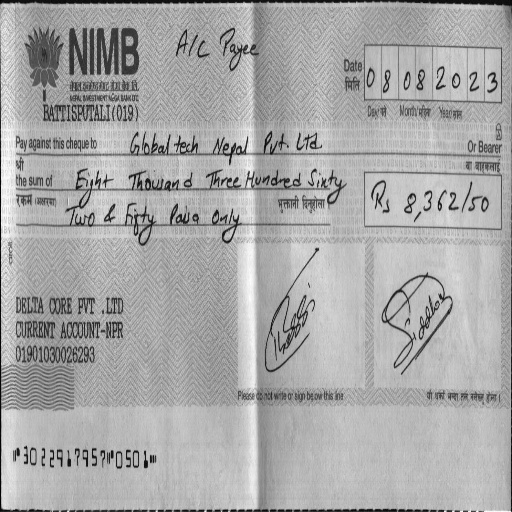 NIMB
A/C Payee
नेपाल इन्भेष्टमेण्ट मेगा बैंक लि.
NEPAL INVESTMENT MEGA BANK LTD.
BATTISPUTALI(019)
Date
मिति
08082023
Day/गते Month/महिना Year/साल
Pay against this cheque to Globaltech Nepal Pvt. Ltd
Or Bearer
श्री
वा वाहकलाई
the sum of Eight Thousand Three Hundred Sixty
रकम (अक्षरमा)
भुक्तानी दिनुहोला
Two & Fifty Paisa Only
Rs 8,362/50
DELTA CORE PVT .LTD
CURRENT ACCOUNT-NPR
01901030026293
Please do not write or sign below this line
⑈30229179⑈5?⑈0501⑈